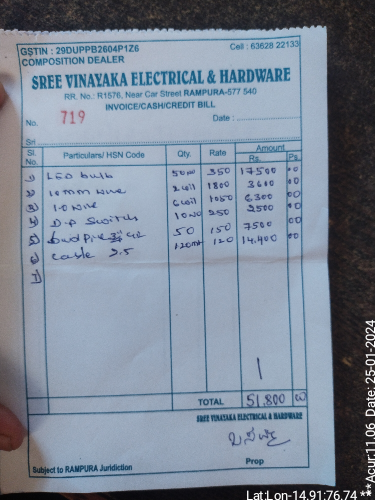 GSTIN : 29DUPPB2604P1Z6 Cell : 63628 22133
COMPOSITION DEALER
SREE VINAYAKA ELECTRICAL & HARDWARE
RR. No.: R1576, Near Car Street RAMPURA-577 540
INVOICE/CASH/CREDIT BILL
No. 719 Date :
Sri
Sl. No. Particulars/ HSN Code Qty. Rate Amount Rs. Ps.
1) LED bulb 50 350 17500 00
2) 10mm wire 2 coil 1800 3600 00
3) 1.0 wire 6 coil 1050 6300 00
4) D.P Switch 10 250 2500 00
5) 50 150 7500 00
6) cable 2.5 120mt 120 14.400 00
7)
TOTAL 51,800
SREE VINAYAKA ELECTRICAL & HARDWARE
Subject to RAMPURA Juridiction Prop
Lat:Lon-14.91:76.74 *** Acur:11.06 Date: 25-01-2024